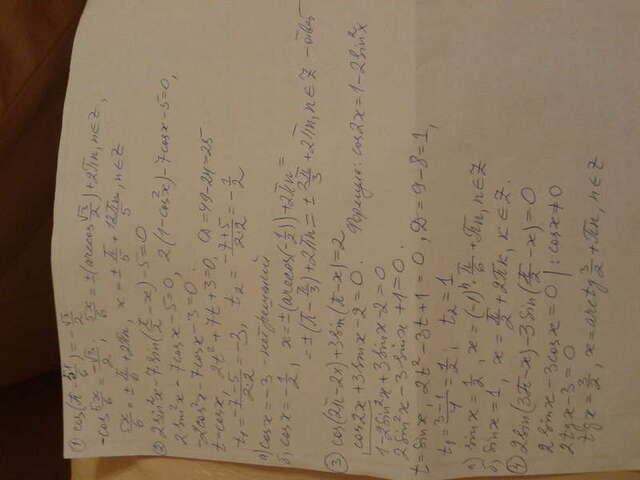 ① cos(π - 5x/6) = √3/2
-cos 5x/6 = √3/2, 5x/6 = ±(arccos √3/2) + 2πn, n∈Z,
5x/6 = ± π/6 + 2πn, x = ± π/5 + 12πn/5, n∈Z
② 2sin²x - 7sin(π/2 - x) - 5 = 0
2sin²x - 7cosx - 5 = 0, 2(1-cos²x) - 7cosx - 5 = 0,
-2cos²x - 7cosx - 3 = 0.
t = cosx, 2t² + 7t + 3 = 0. D = 49 - 24 = 25.
t₁ = -7-5/2·2 = -3, t₂ = -7+5/2·2 = -1/2
а) cosx = -3 нет решений
б) cosx = -1/2, x = ±(arccos(-1/2)) + 2πn =
= ±(π - π/3) + 2πn = ± 2π/3 + 2πn, n∈Z - ответ
③ cos(2π-2x) + 3sin(π-x) = 2
cos2x + 3sinx - 2 = 0. Формула: cos2x = 1 - 2sin²x
1 - 2sin²x + 3sinx - 2 = 0
2sin²x - 3sinx + 1 = 0.
t = sinx, 2t² - 3t + 1 = 0, D = 9 - 8 = 1,
t₁ = 3-1/4 = 1/2, t₂ = 1
а) sinx = 1/2, x = (-1)ⁿ π/6 + πn, n∈Z
б) sinx = 1, x = π/2 + 2πk, k∈Z.
④ 2sin(3π-x) - 3sin(π/2 - x) = 0
2sinx - 3cosx = 0 | : cosx ≠ 0
2tgx - 3 = 0
tgx = 3/2, x = arctg 3/2 + πn, n∈Z